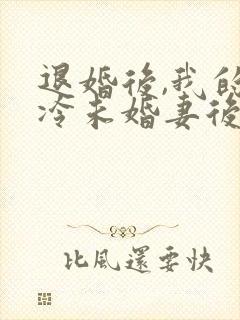 退婚後,我的
冷未婚妻後
比風還要快